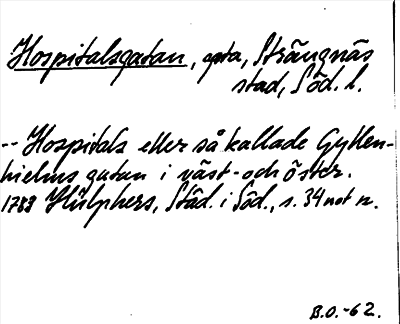 Hospitalsgatan, gata, Strängnäs
stad, Söd. l.
-- Hospitals eller så kallade Gyllen-
hielms gatan i väst- och öster.
1783 Hülphers, Städ. i Söd., s. 34 not n.
B.O.-62.